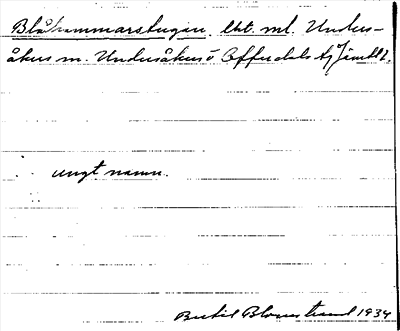 Blåhammarstugan, lht. ml. Unders-
åkers sn. Undersåkers o Offerdals tg Jämtl l.
ungt namn.
Bertil Blomstrand 1934